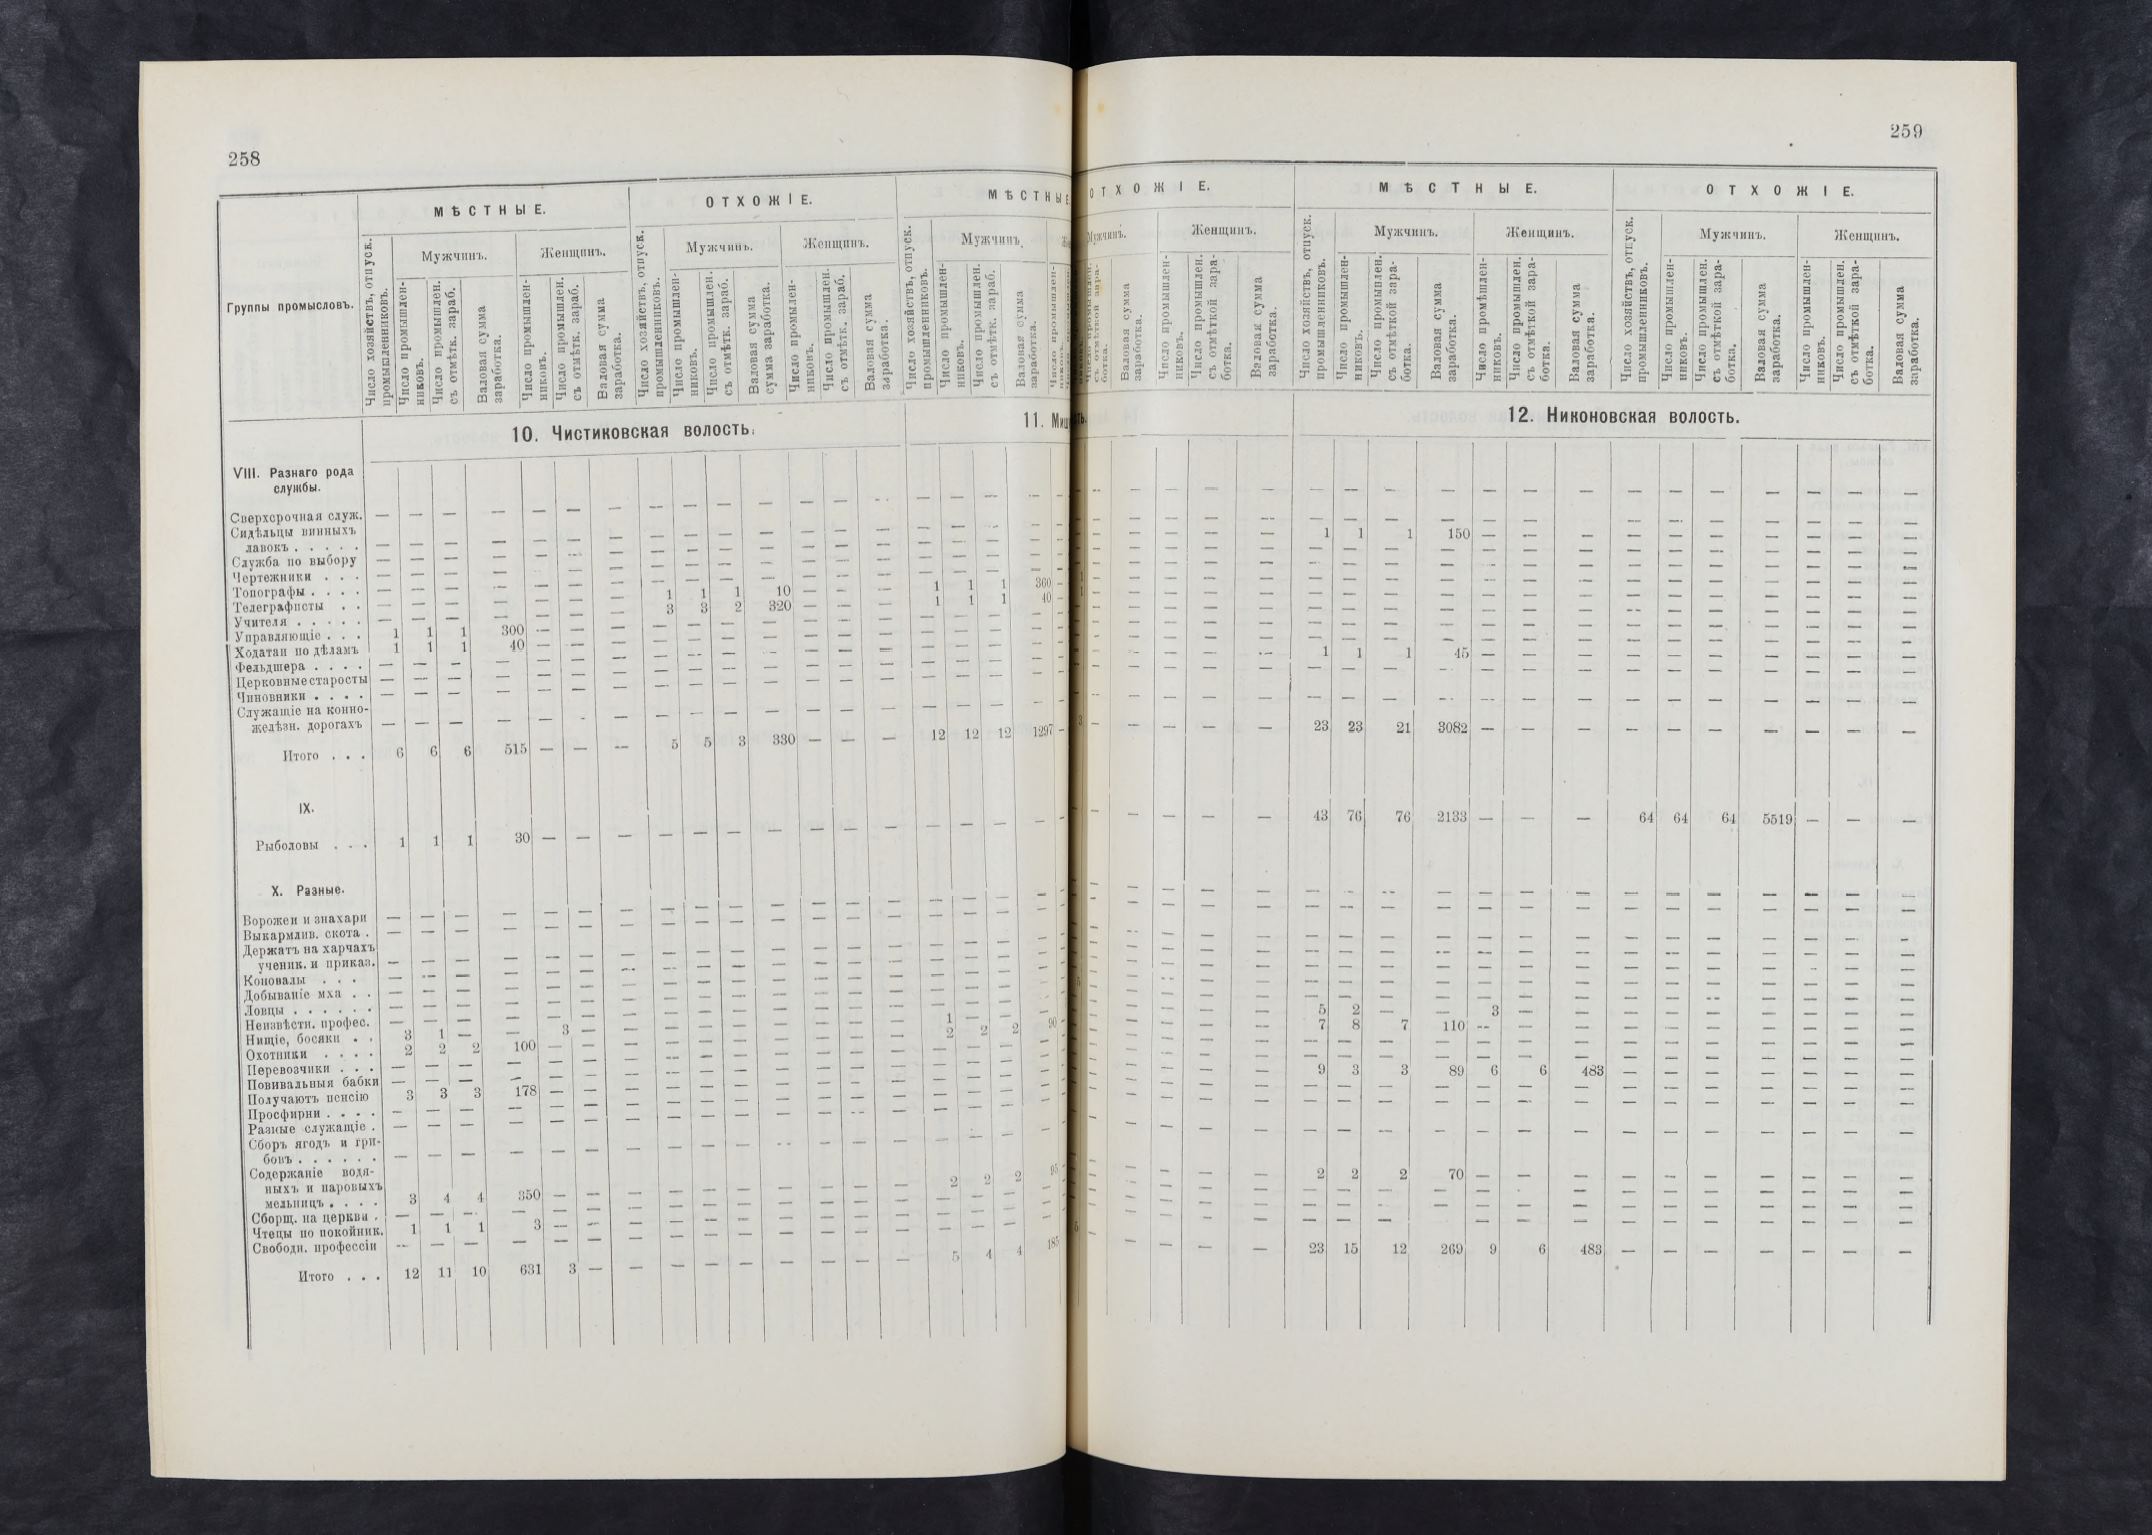 258
259
МѢСТНЫЕ. ОТХОЖІЕ. МѢСТНЫЕ
Группы промысловъ.
Число хозяйствъ, отпуск. промышленниковъ.
Мужчинъ. Женщинъ.
Число промышленниковъ.
Число промышлен. съ отмѣтк. зараб.
Валовая сумма заработка.
Число промышленниковъ.
Число промышлен. съ отмѣтк. зараб.
Валовая сумма заработка.
Число хозяйствъ, отпуск. промышленниковъ.
Мужчинъ. Женщинъ.
Число промышленниковъ.
Число промышлен. съ отмѣтк. зараб.
Валовая сумма сумма заработка.
Число промышленниковъ.
Число промышлен. съ отмѣтк. зараб.
Валовая сумма заработка.
Число хозяйствъ, отпуск. промышленниковъ.
Мужчинъ
Число промышленниковъ.
Число промышлен. съ отмѣтк. зараб.
Валовая сумма заработка.
10. Чистиковская волость. 11.
VIII. Разнаго рода
службы.
Сверхсрочная служ. — — — — — — — — — — — — — — — — — —
Сидѣльцы винныхъ
лавокъ . . . . . — — — — — — — — — — — — — — — — — —
Служба по выбору — — — — — — — — — — — — — — — — — —
Чертежники . . . — — — — — — — — — — — — — — — — — —
Топографы . . . . — — — — — — — — — — — — — — — — — —
Телеграфисты . . — — — — — — — 1 1 1 10 — — — 1 1 1 360
Учителя . . . . . — — — — — — — 3 3 2 320 — — — 1 1 1 40
Управляющіе . . . 1 1 1 300 — — — — — — — — — — — — — —
Ходатаи по дѣламъ 1 1 1 40 — — — — — — — — — — — — — —
Фельдшера . . . . — — — — — — — — — — — — — — — — — —
Церковные старосты — — — — — — — — — — — — — — — — — —
Чиновники . . . . — — — — — — — — — — — — — — — — — —
Служащіе на конно-
желѣзн. дорогахъ — — — — — — — — — — — — — — — — — —
Итого . . . 6 6 6 515 — — — 5 5 3 330 — — — 12 12 12 1297
IX.
Рыболовы . . . 1 1 1 30 — — — — — — — — — — — — — —
X. Разные.
Ворожеи и знахари — — — — — — — — — — — — — — — — — —
Выкармлив. скота . — — — — — — — — — — — — — — — — — —
Держатъ на харчахъ
ученик. и приказ. — — — — — — — — — — — — — — — — — —
Коновалы . . . — — — — — — — — — — — — — — — — — —
Добываніе мха . . — — — — — — — — — — — — — — — — — —
Ловцы . . . . . . — — — — — — — — — — — — — — — — — —
Неизвѣстн. профес. — — — — — — — — — — — — — — — — — —
Нищіе, босяки . . 3 1 — — 3 — — — — — — — — — 1 — — —
Охотники . . . . 2 2 2 100 — — — — — — — — — — 2 2 2 90
Перевозчики . . . — — — — — — — — — — — — — — — — — —
Повивальныя бабки — — — — — — — — — — — — — — — — — —
Получаютъ пенсію 3 3 3 178 — — — — — — — — — — — — — —
Просфирни . . . . — — — — — — — — — — — — — — — — — —
Разные служащіе . — — — — — — — — — — — — — — — — — —
Сборъ ягодъ и гри-
бовъ . . . . . . — — — — — — — — — — — — — — — — — —
Содержаніе водя-
ныхъ и паровыхъ
мельницъ . . . . 3 4 4 350 — — — — — — — — — — 2 2 2 95
Сборщ. на церкви . — — — — — — — — — — — — — — — — — —
Чтецы по покойник. 1 1 1 3 — — — — — — — — — — — — — —
Свободн. профессіи — — — — — — — — — — — — — — — — — —
Итого . . . 12 11 10 631 3 — — — — — — — — — 5 4 4 185
ОТХОЖІЕ. МѢСТНЫЕ. ОТХОЖІЕ.
Мужчинъ. Женщинъ.
Валовая сумма заработка.
Число промышленниковъ.
Число промышлен. съ отмѣткой заработка.
Валовая сумма заработка.
Число хозяйствъ, отпуск. промышленниковъ.
Мужчинъ. Женщинъ.
Число промышленниковъ.
Число промышлен. съ отмѣткой заработка.
Валовая сумма заработка.
Число промышленниковъ.
Число промышлен. съ отмѣткой заработка.
Валовая сумма заработка.
Число хозяйствъ, отпуск. промышленниковъ.
Мужчинъ. Женщинъ.
Число промышленниковъ.
Число промышлен. съ отмѣткой заработка.
Валовая сумма заработка.
Число промышленниковъ.
Число промышлен. съ отмѣткой заработка.
Валовая сумма заработка.
12. Никоновская волость.
1 1 1 150 — — — — — — — — — —
1 1 1 45 — — — — — — — — — —
23 23 21 3082 — — — — — — — — — —
43 76 76 2133 — — — 64 64 64 5519 — — —
5 2 — — 3 — — — — — — — — —
7 8 7 110 — — — — — — — — — —
9 3 3 89 6 6 483 — — — — — — —
2 2 2 70 — — — — — — — — — —
23 15 12 269 9 6 483 — — — — — — —